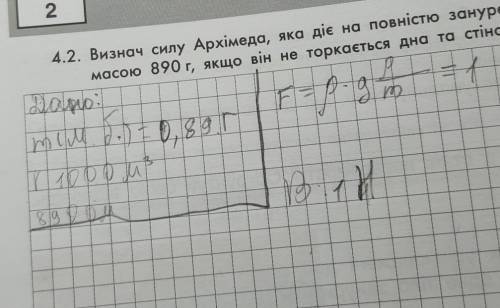 2
4.2. Визнач силу Архімеда, яка діє на повністю зануре
масою 890 г, якщо він не торкається дна та стіно
Дано:
m(м.б.) = 0,89 г
1000 м³
8900
F = ρ · g = 1
В: 1 Н